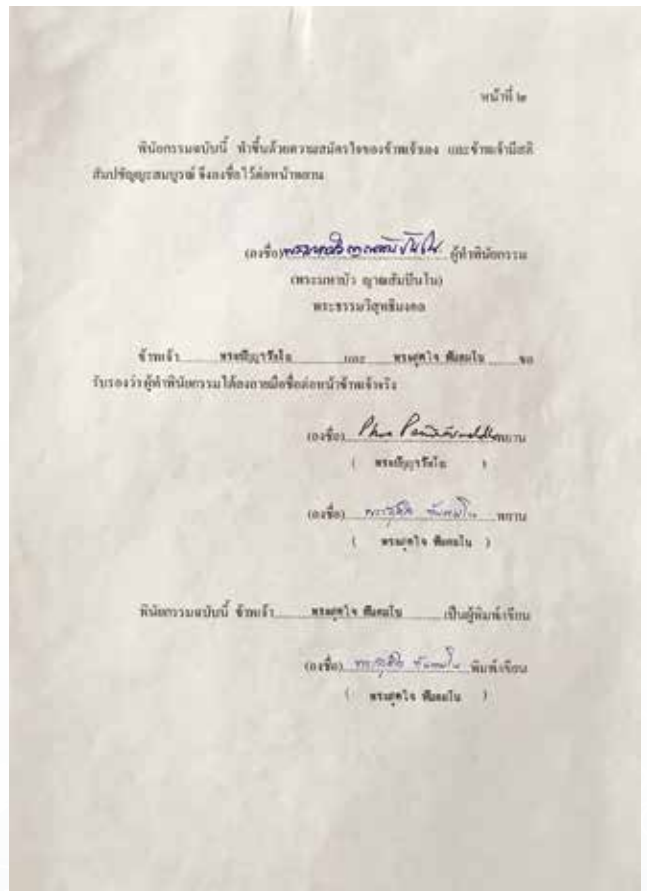 หน้าที่ ๒
พินัยกรรมฉบับนี้ ทำขึ้นด้วยความสมัครใจของข้าพเจ้าเอง และข้าพเจ้ามีสติ
สัมปชัญญะสมบูรณ์ จึงลงชื่อไว้ต่อหน้าพยาน
(ลงชื่อ) ผู้ทำพินัยกรรม
(พระมหาบัว ญาณสัมปันโน)
พระธรรมวิสุทธิมงคล
ข้าพเจ้า พระปัญญาวัฑโฒ และ พระสุดใจ ทันตมโน ขอ
รับรองว่าผู้ทำพินัยกรรมได้ลงลายมือชื่อต่อหน้าข้าพเจ้าจริง
(ลงชื่อ) พยาน
( พระปัญญาวัฑโฒ )
(ลงชื่อ) พระสุดใจ ทันตมโน พยาน
( พระสุดใจ ทันตมโน )
พินัยกรรมฉบับนี้ ข้าพเจ้า พระสุดใจ ทันตมโน เป็นผู้พิมพ์/เขียน
(ลงชื่อ) พระสุดใจ ทันตมโน พิมพ์/เขียน
( พระสุดใจ ทันตมโน )